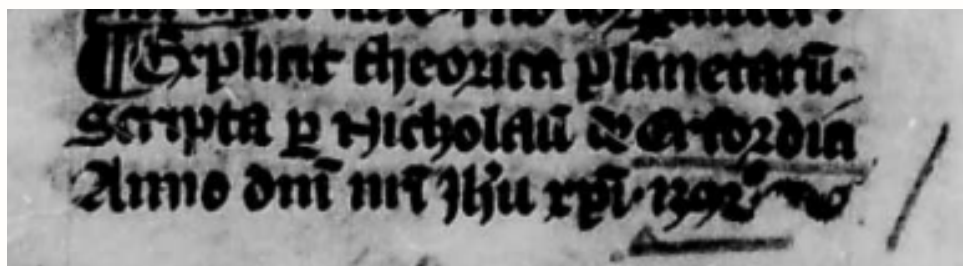 ¶ Explicit theorica planetarū.
Scripta ꝑ Nicholaū de Erfordia
Anno dnī nrī Jhū xpī 1392°